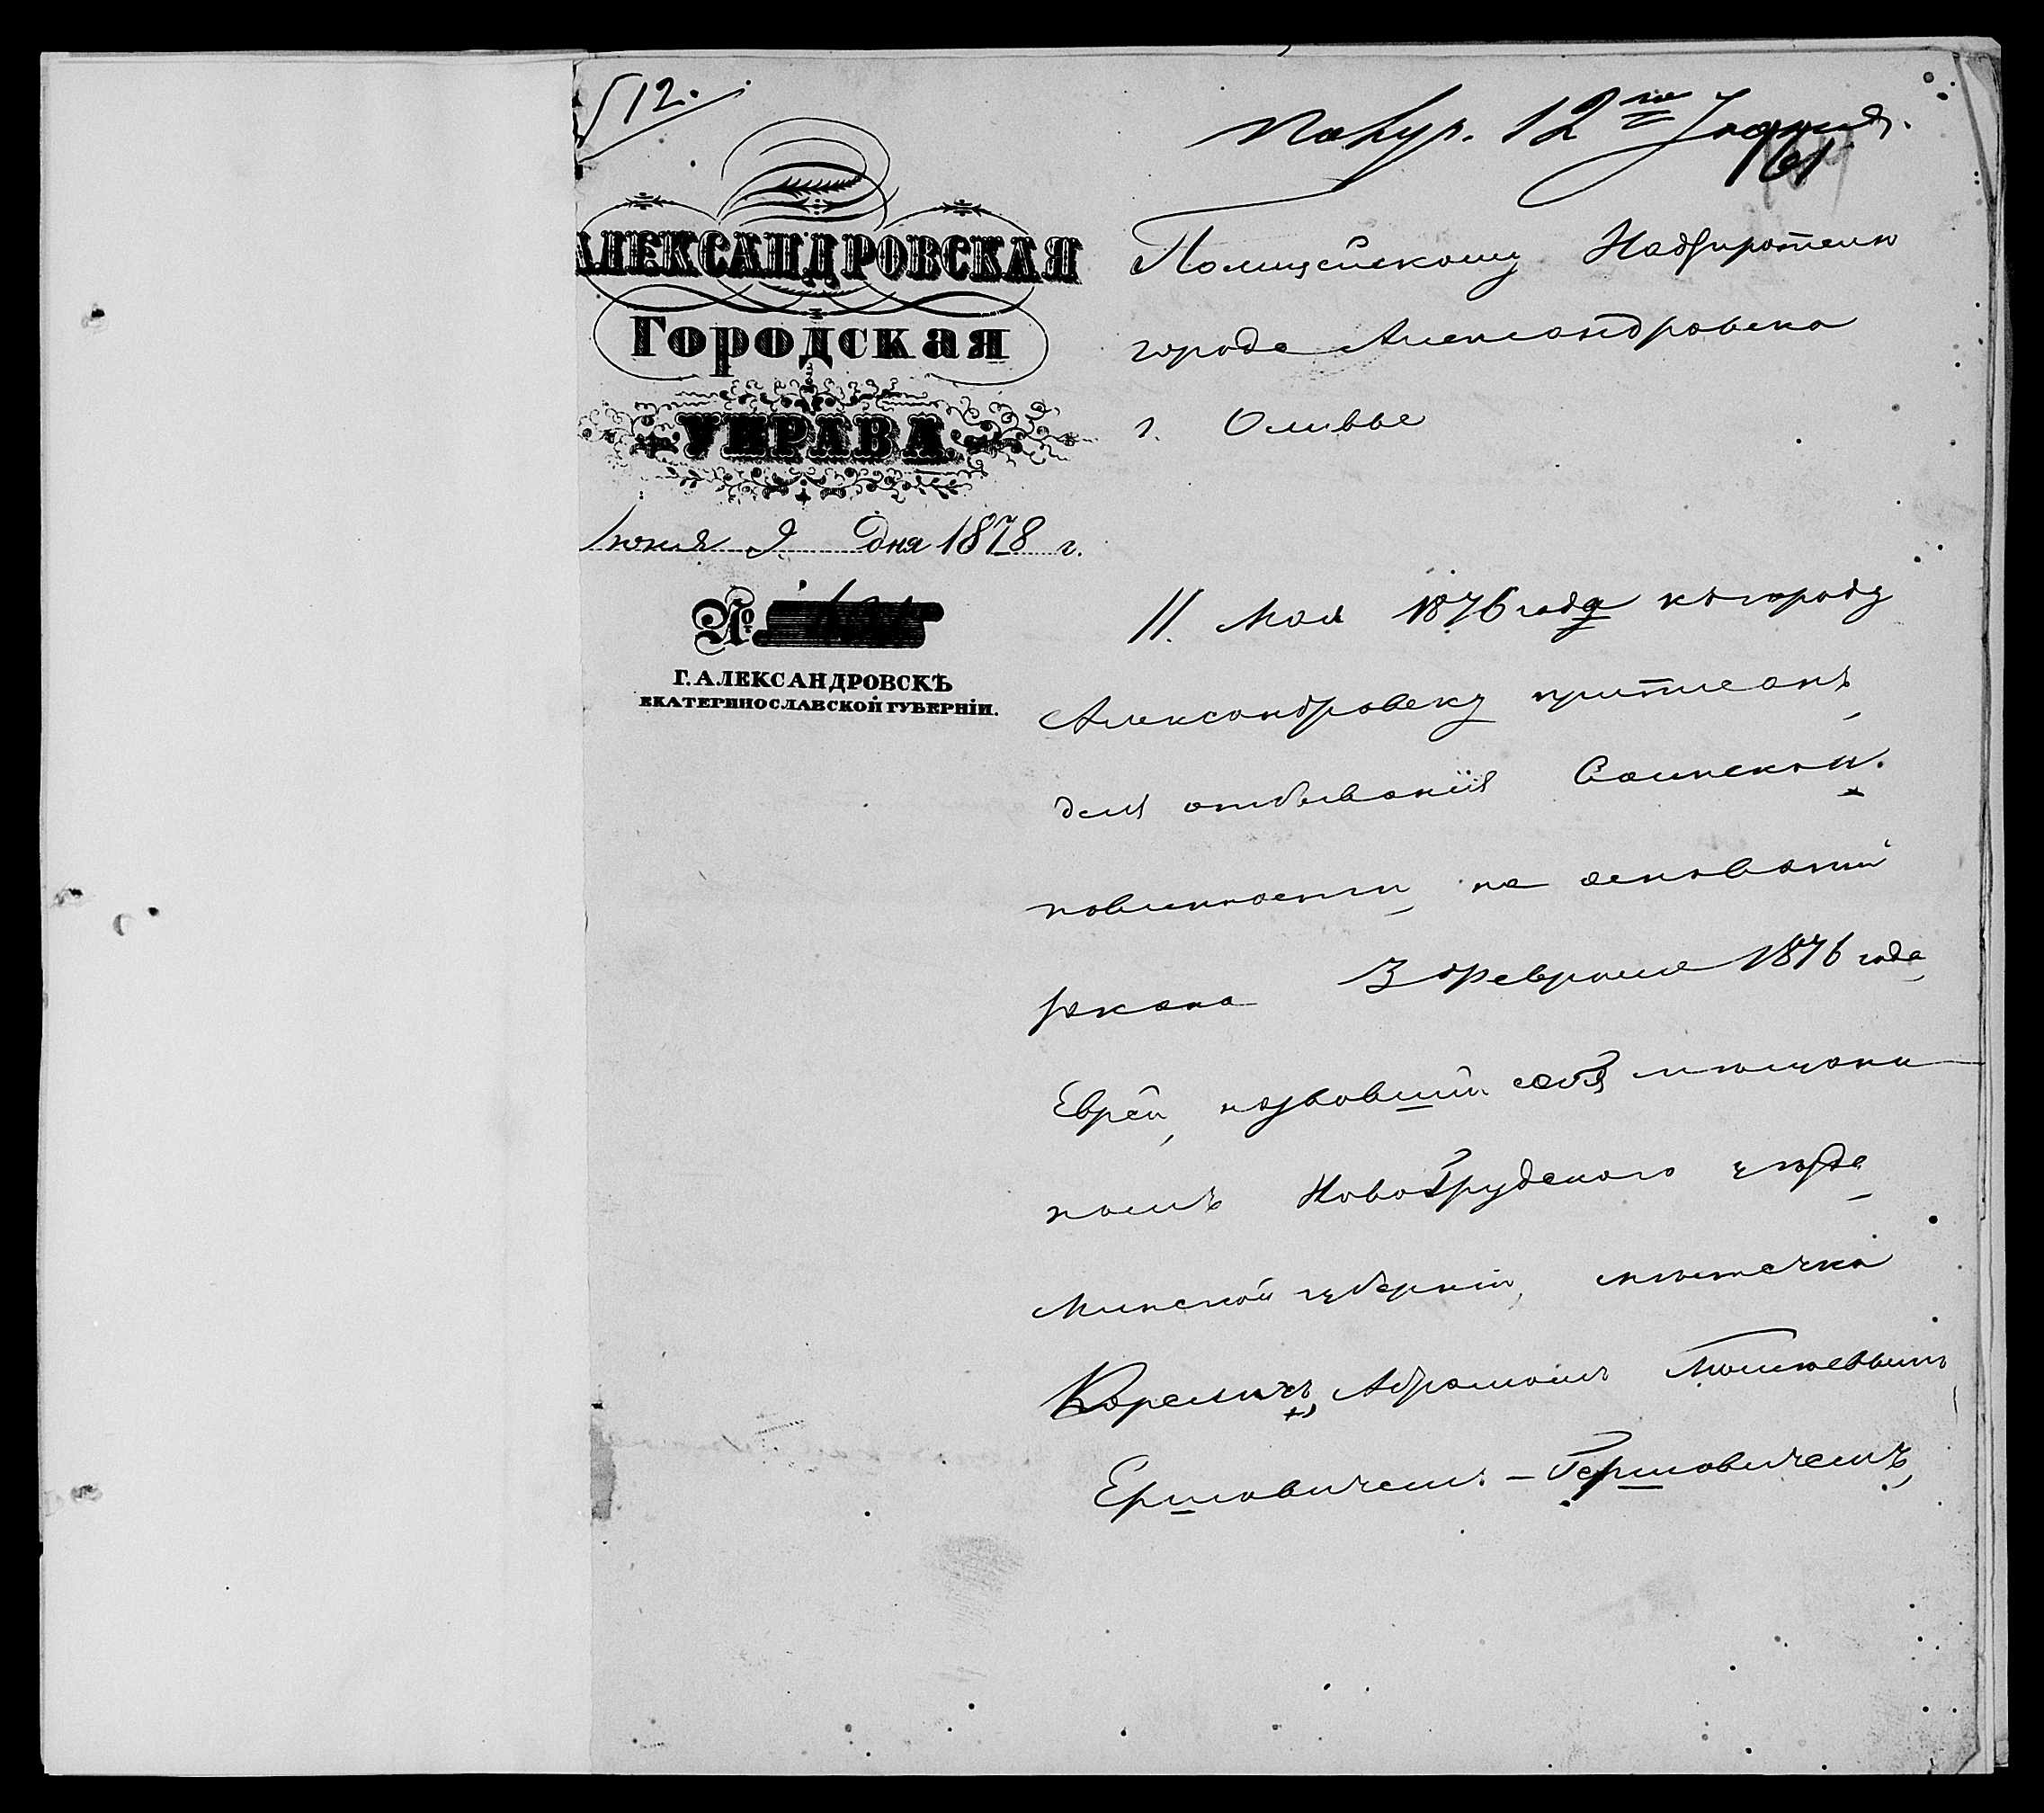 512.
Получ. 12го Іюня.
161
АЛЕКСАНДРОВСКАЯ
Городская
УПРАВА.
Іюня 9 дня 1878 г.
№
Г. АЛЕКСАНДРОВСКЪ
ЕКАТЕРИНОСЛАВСКОЙ ГУБЕРНІИ.
Полицейскому Надзирателю
города Александровска
г. Оливье
11. Мая 1876 года къ городу
Александровску приписанъ,
для отбыванія Воинской
повинности, на основаніи
указа 3 февраля 1876 года,
Еврей, назвавшій себя мѣщани
номъ Новогрудскаго уѣзда
Минской губерніи, мѣстечка
Кореличъ, Абрамомъ Мошковымъ
Ершовичемъ - Гершовичемъ,